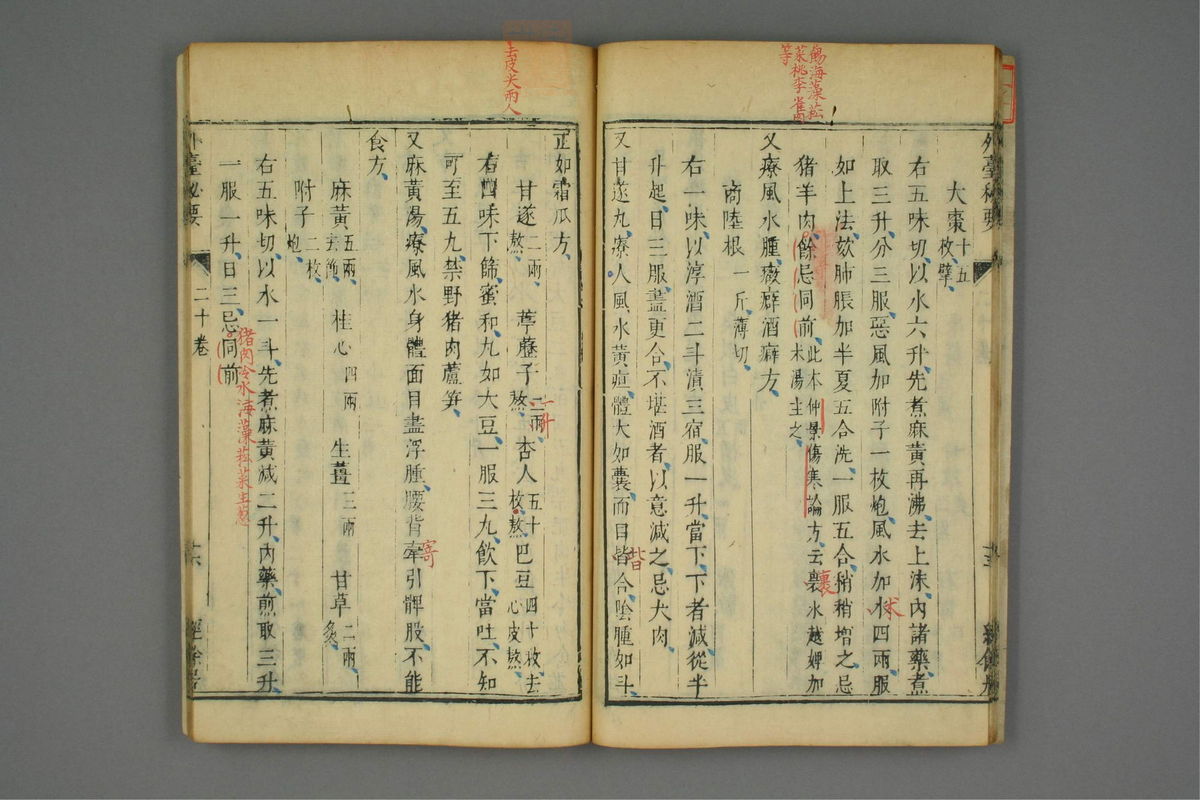 餳海藻菘
菜桃李雀肉
等
外臺秘要
大棗十五枚擘
右五味切以水六升先煮麻黃再沸去上沫內諸藥煮
取三升分三服惡風加附子一枚炮風水加水四兩服
朮
如上法欬肺脹加半夏五合洗一服五合稍稍增之忌
猪羊肉餘忌同前此本仲景傷寒論方云裹水越婢加
朮湯主之
裏
又療風水腫癥癖酒癖方
商陸根一斤薄切
右一味以淳酒二斗漬三宿服一升當下下者減從半
升起日三服盡更合不堪酒者以意減之忌犬肉
又甘遂丸療人風水黃疸體大如囊而目皆合陰腫如斗
皆
去皮尖兩人
正如霜瓜方
甘遂二兩熬 葶藶子二兩熬 杏人五十枚熬 巴豆四十枚去心皮熬
一升
右四味下篩蜜和丸如大豆一服三丸飲下當吐不知
可至五丸禁野猪肉蘆笋
又麻黃湯療風水身體面目盡浮腫腰背牽引髀股不能
食方
麻黃五兩去節 桂心四兩 生薑三兩 甘草二兩炙
附子二枚炮
右五味切以水一斗先煮麻黃減二升內藥煎取三升
一服一升日三忌同前
猪肉冷水海藻菘菜生葱
外臺秘要
二十卷
十六
經餘居